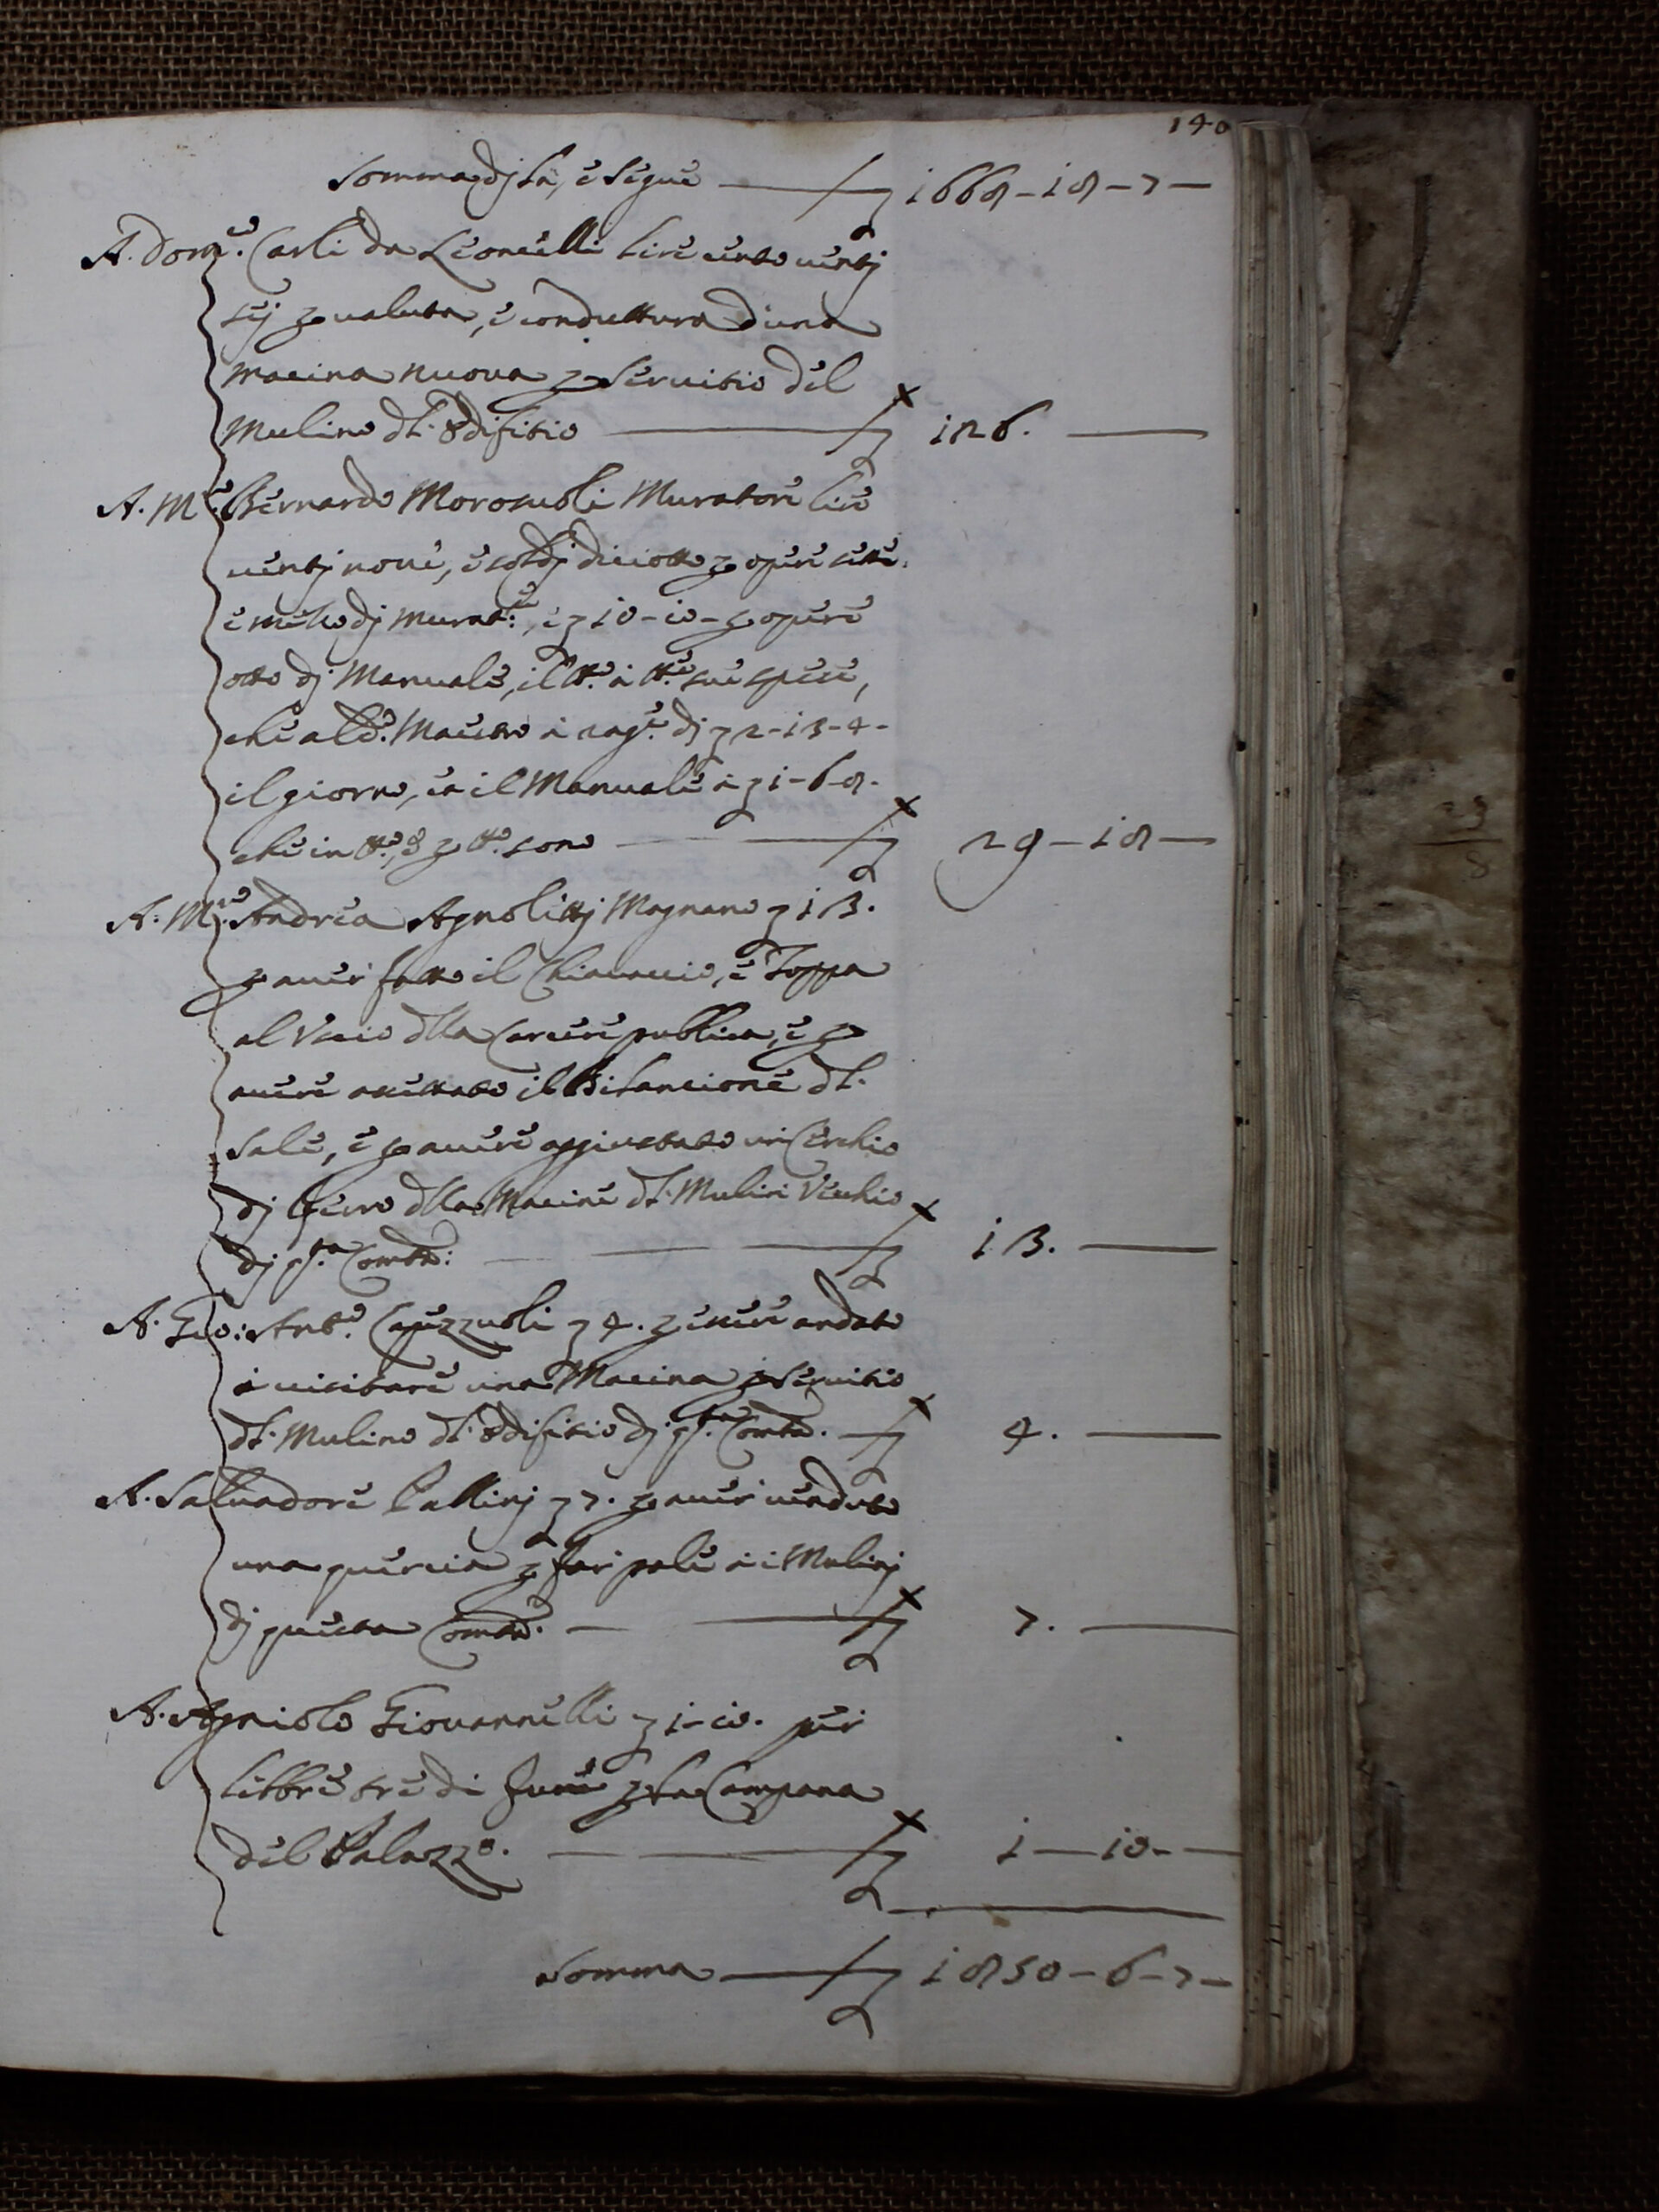 140
Somma di là, e segue — £ 1668-18-7—
A. Dom.co Carli da Leonelli lire cento venti
sej p valuta, e conduttura d'una
macina nuova p servitio del
Mulino dl. Edifitio — £ 126. —
A. M.ro Bernardo Morosuoli Muratore lire
ventj nove, e soldj diciotto p opere sette,
e mezzo dj Murat.e, e £ 10-10- p opere
otto dj Manuale, il tt.o à tt.e sue spese,
che al d.o Maestro à rag.e dj £ 2-13-4-
il giorno, et il Manuale à £ 1-6-8-
che in tt.o, e p tt.o sono — £ 29-18—
A. M.ro Andrea Agnolettj Magnano £ 13.
p aver fatto il Chiavaccio, e Toppa
al Uscio dlla Carcere publica, e p
avere accettato il Bilancione dl.
Sale, e p avere aggiustato un Cerchio
dj ferro dlla Macine dl. Mulin Vecchio
dj qs.ta Comtà: — £ 13. —
A. Gio: Ant.o Capezzuoli £ 4. p essere andato
à visitare una Macina p servitio
dl. Mulino dl. Edifitio dj qs.ta Comtà. — £ 4. —
A. Salvadore Pallinj £ 7. p aver venduto
una quercia p far pale à i Mulinj
dj questa Comtà. — £ 7. —
A. Agniolo Giovannelli £ 1-10. per
libbre tre di fune p la Campana
del Palazzo. — £ 1—10-—
Somma — £ 1850-6-7—